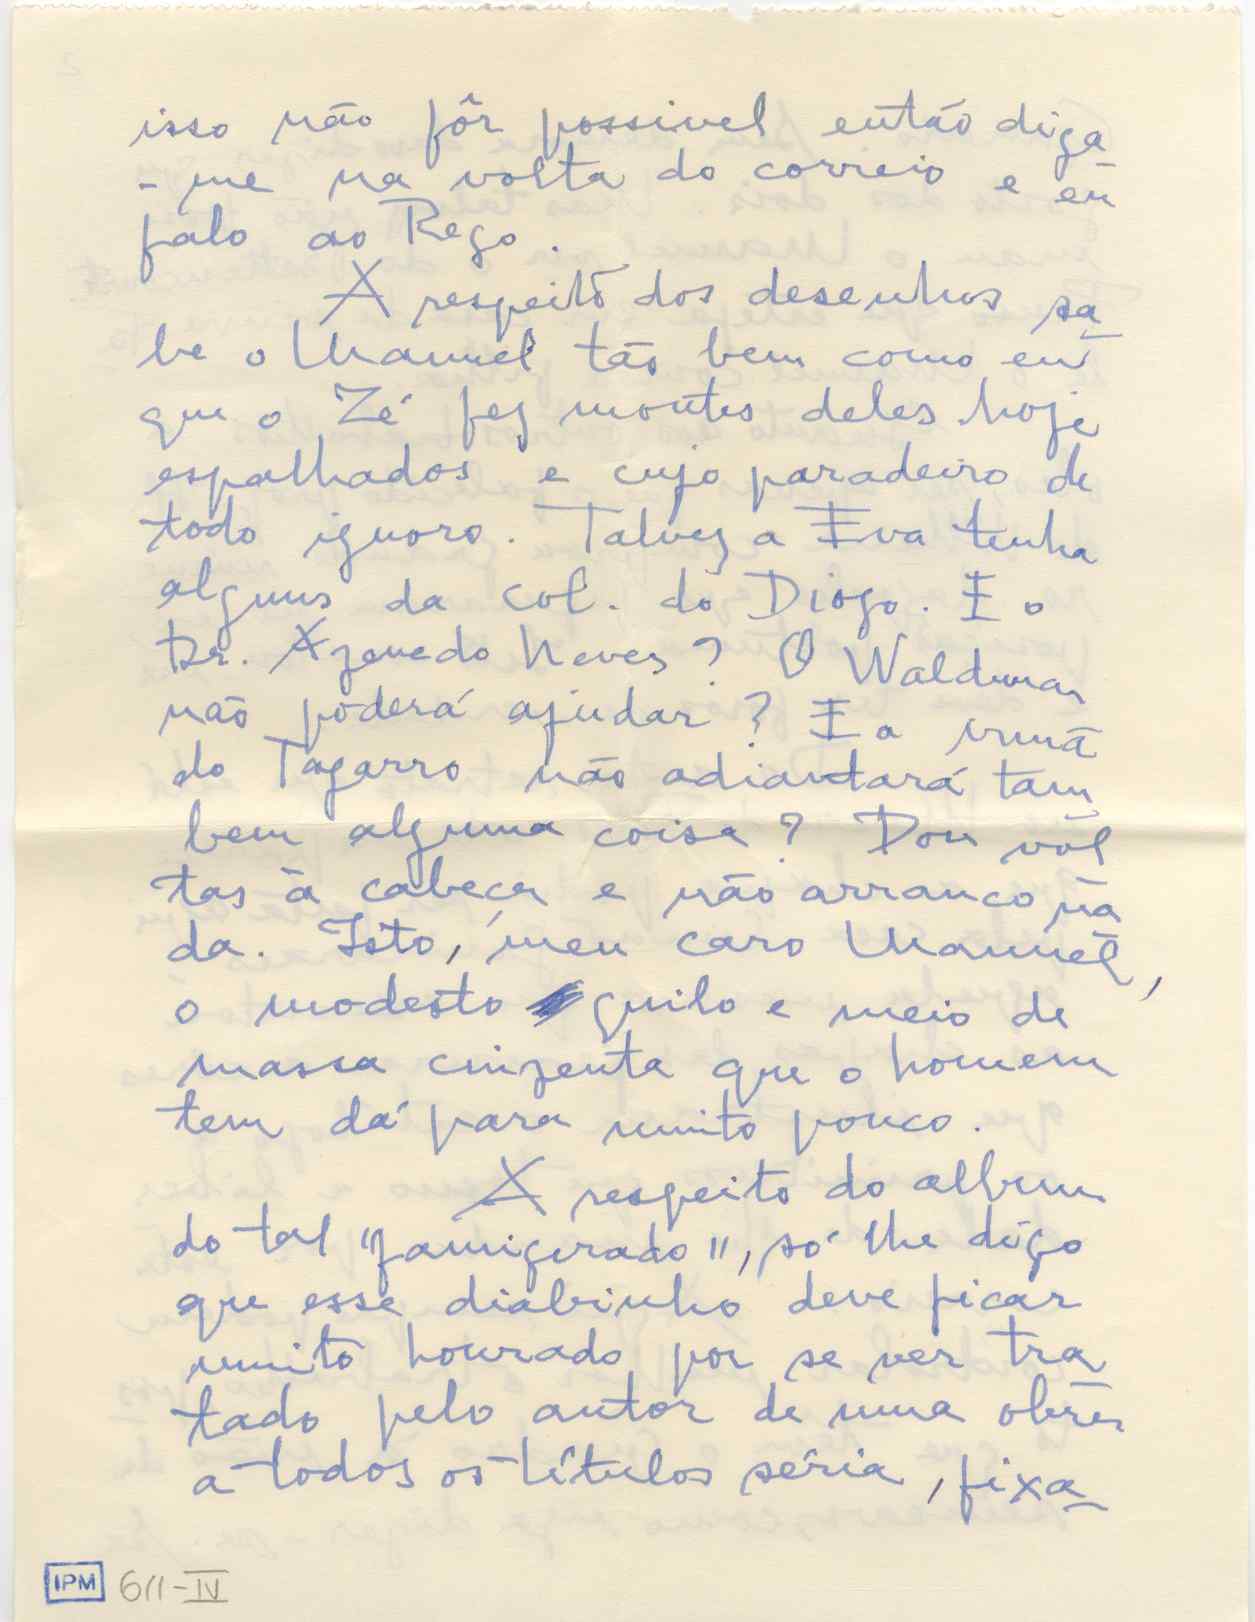 isso não fôr possivel então diga
-me na volta do correio e eu
falo ao Rego.
A respeito dos desenhos sa
be o Manuel tão bem como eu
que o Zé fez montes deles hoje
espalhados e cujo paradeiro de
todo ignoro. Talvez a Eva tenha
alguns da col. do Diogo. E o
Dr. Azevedo Neves? O Waldemar
não poderá ajudar? E a irmã
do Tagarro não adiantará tam
bem alguma coisa? Dou vol
tas à cabeça e não arranco na
da. Isto, meu caro Manuel,
o modesto quilo e meio de
massa cinzenta que o homem
tem dá para muito pouco.
A respeito do album
do tal "famigerado", só lhe digo
que esse diabinho deve ficar
muito honrado por se ver tra
tado pelo autor de uma obra
a todos os títulos séria, fixa
IPM 611-IV